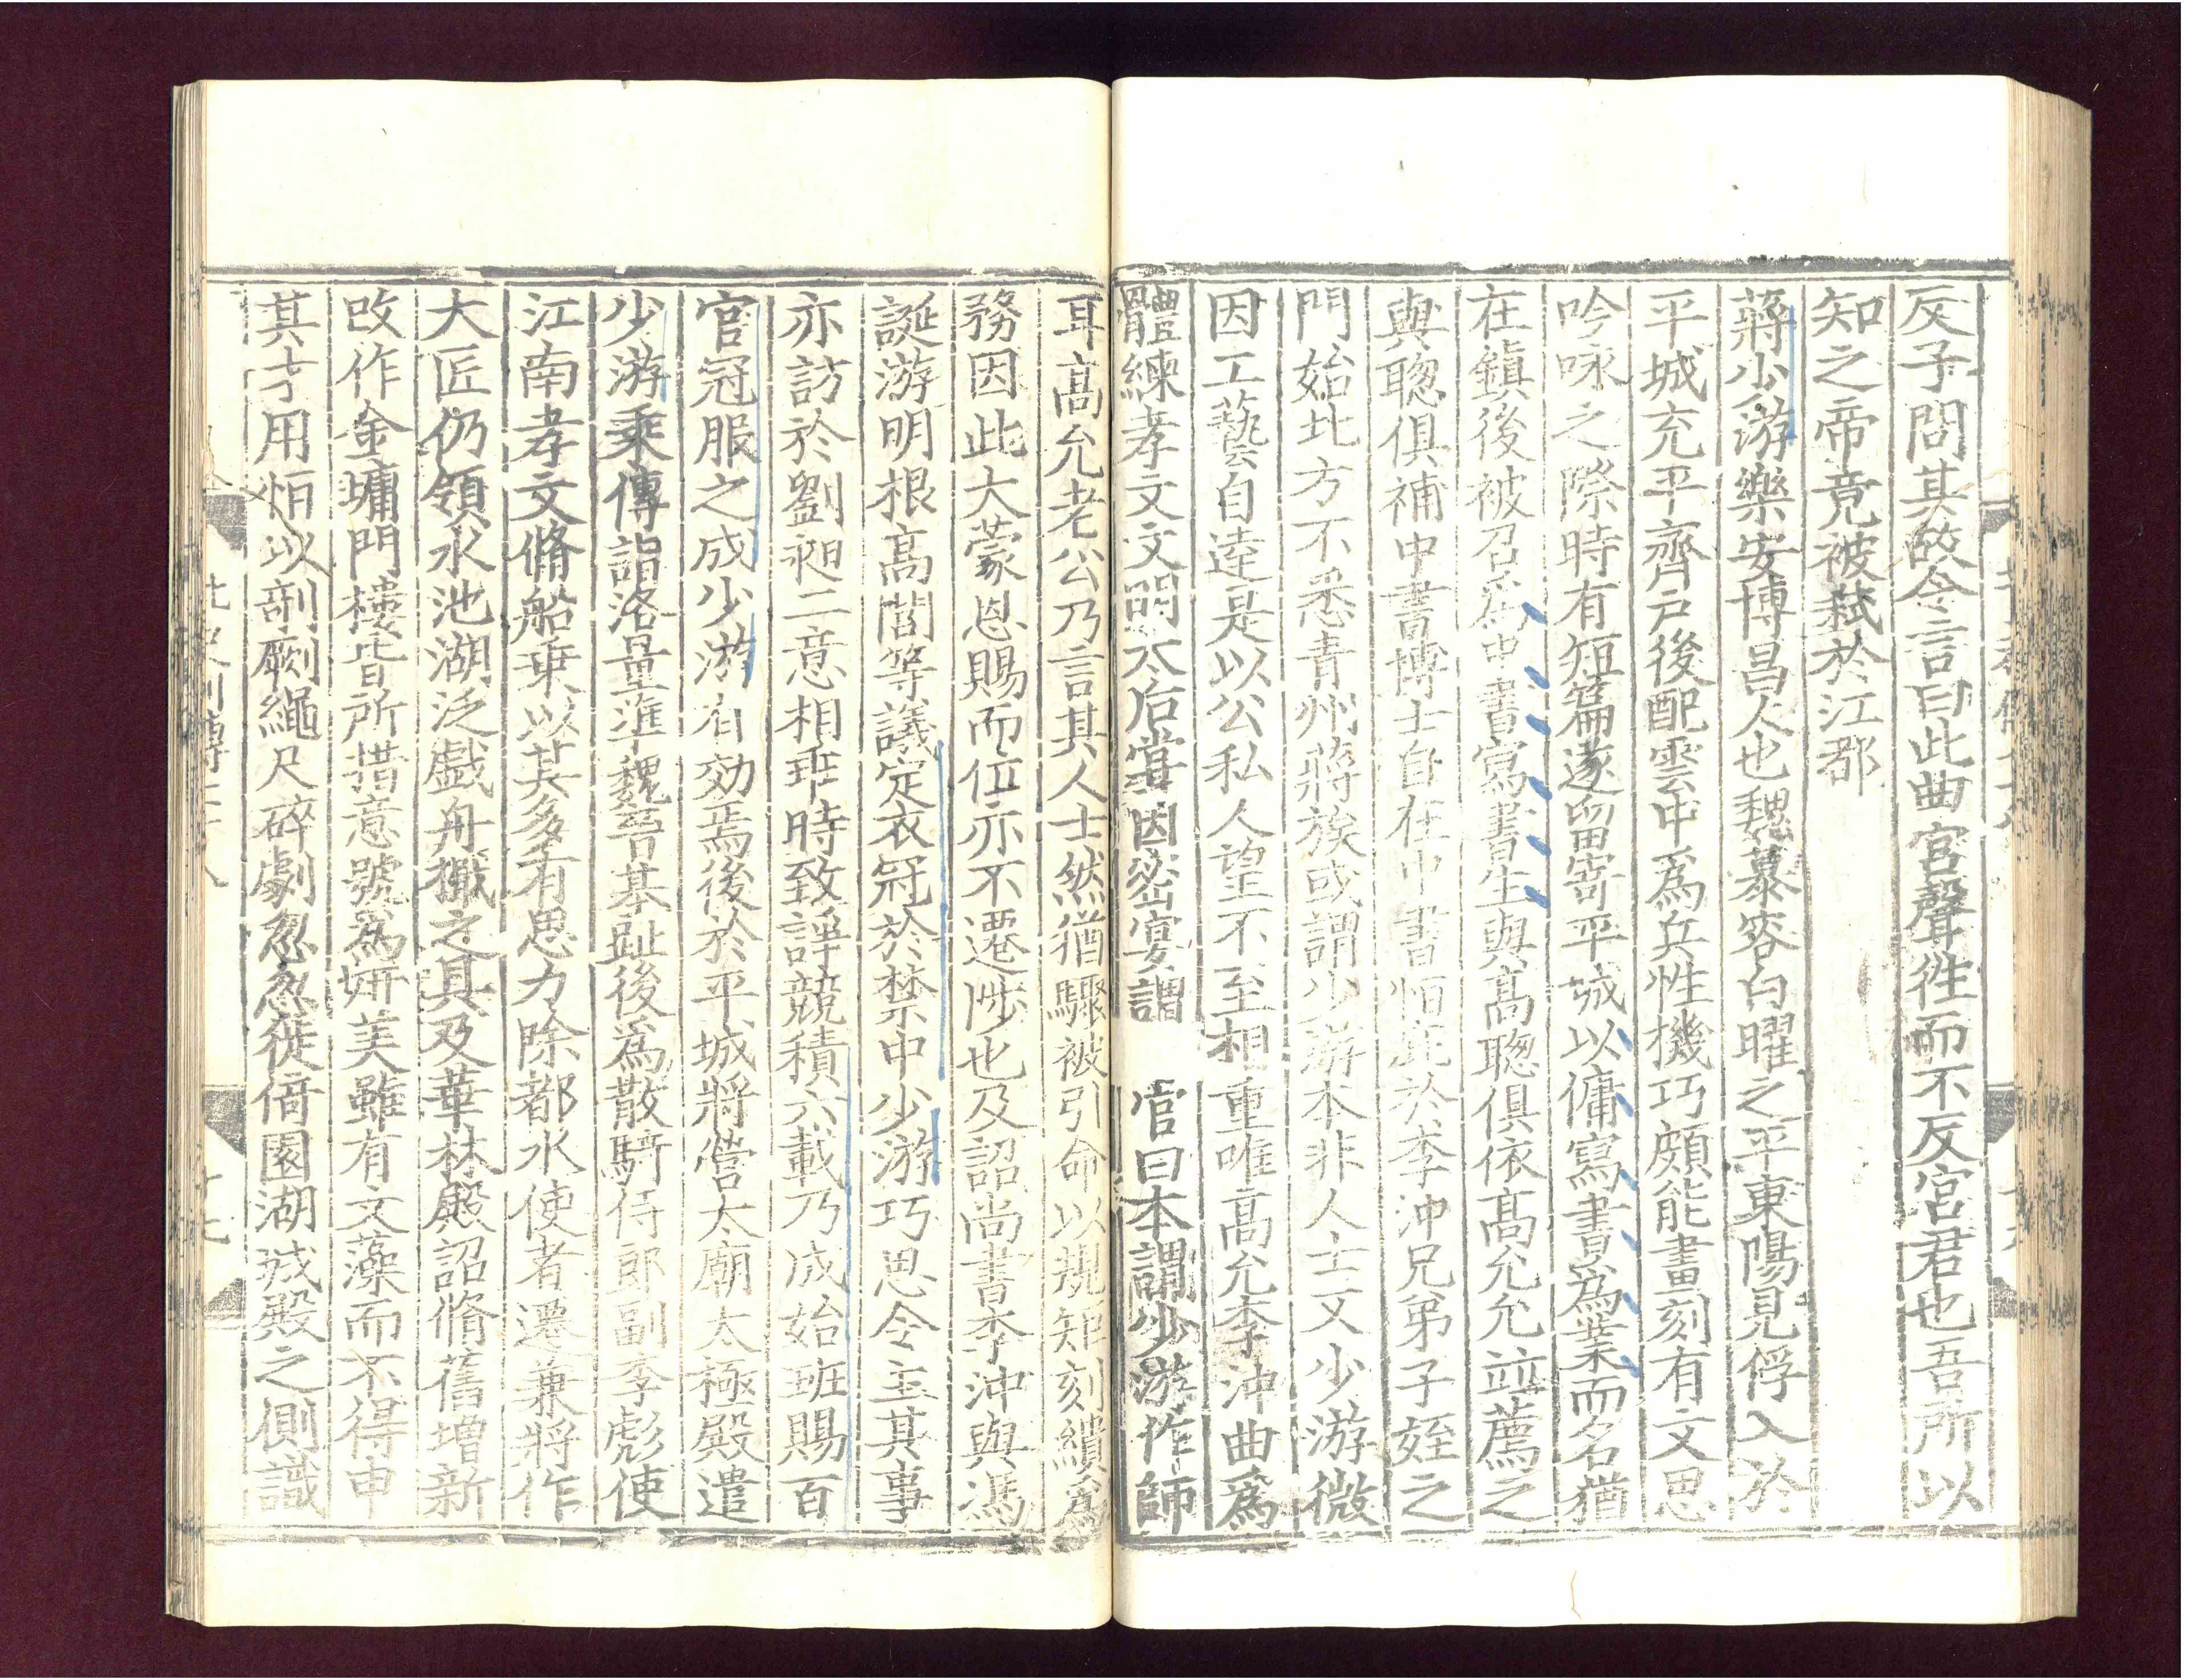 反子問其故令言曰此曲宮聲徃而不反宮君也吾所以
知之帝竟被弑於江都
蔣少游樂安博昌人也魏慕容白曜之平東陽見俘入於
平城充平齊戶後配雲中爲兵性機巧頗能畫刻有文思
吟咏之際時有短篇遂留寄平城以傭寫書爲業而名猶
在鎮後被召爲中書寫書生與髙聦俱依髙允允竝薦之
與聦俱補中書博士自在中書恒庇於李沖兄弟子姪之
門始北方不悉青州蔣族或謂少游本非人士又少游微
因工藝自逹是以公私人望不至相重唯髙允李沖曲爲
體練孝文文明太后甞因密宴謂官曰本謂少游作師
耳髙允老公乃言其人士然猶驟被引命以規矩刻繢爲
務因此大蒙恩賜而位亦不遷陟也及詔尚書李沖與馮
誕游明根髙閭等議定衣冠於禁中少游巧思令主其事
亦訪於劉昶二意相乖時致諍競積六載乃成始班賜百
官冠服之成少游有効焉後於平城將營太廟太極殿遣
少游乘傳詣洛量準魏晉基趾後爲散騎侍郎副李彪使
江南孝文脩船乗以其多有思力除都水使者遷兼將作
大匠仍領水池湖泛戯舟檝之具及華林殿詔脩舊增新
改作金墉門樓皆所措意號爲妍美雖有文藻而不得申
其才用恒以剞劂繩尺碎劇忽忽徙倚園湖城殿之側識
北史列傳七十八
十七